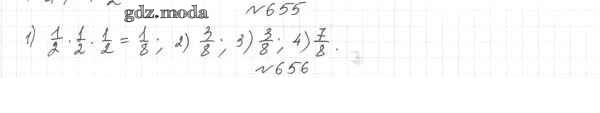 gdz.moda
№655
1) 1/2 · 1/2 · 1/2 = 1/8; 2) 3/8; 3) 3/8; 4) 7/8.
№656